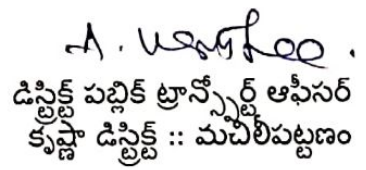 డిస్ట్రిక్ట్ పబ్లిక్ ట్రాన్స్పోర్ట్ ఆఫీసర్
కృష్ణా డిస్ట్రిక్ట్ :: మచిలీపట్టణం